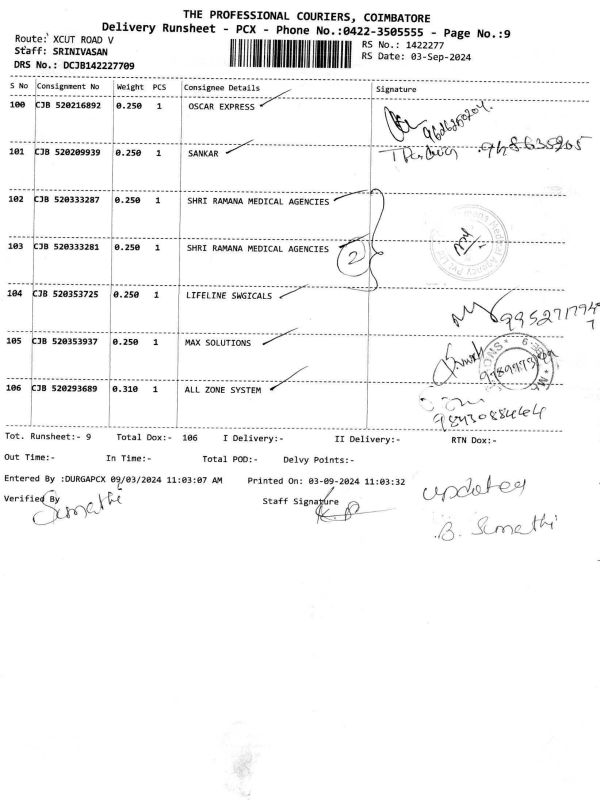 THE PROFESSIONAL COURIERS, COIMBATORE
Delivery Runsheet - PCX - Phone No.:0422-3505555 - Page No.:9
Route: XCUT ROAD V
RS No.: 1422277
Staff: SRINIVASAN
RS Date: 03-Sep-2024
DRS No.: DCJB142227709
S No Consignment No Weight PCS Consignee Details Signature
100 CJB 520216892 0.250 1 OSCAR EXPRESS
101 CJB 520209939 0.250 1 SANKAR
102 CJB 520333287 0.250 1 SHRI RAMANA MEDICAL AGENCIES
103 CJB 520333281 0.250 1 SHRI RAMANA MEDICAL AGENCIES
2
104 CJB 520353725 0.250 1 LIFELINE SWGICALS
105 CJB 520353937 0.250 1 MAX SOLUTIONS
106 CJB 520293689 0.310 1 ALL ZONE SYSTEM
9843088464
Tot. Runsheet:- 9 Total Dox:- 106 I Delivery:- II Delivery:- RTN Dox:-
Out Time:- In Time:- Total POD:- Delvy Points:-
Entered By :DURGAPCX 09/03/2024 11:03:07 AM Printed On: 03-09-2024 11:03:32
Verified By Staff Signature
Sumathi
updated
B. Sumathi